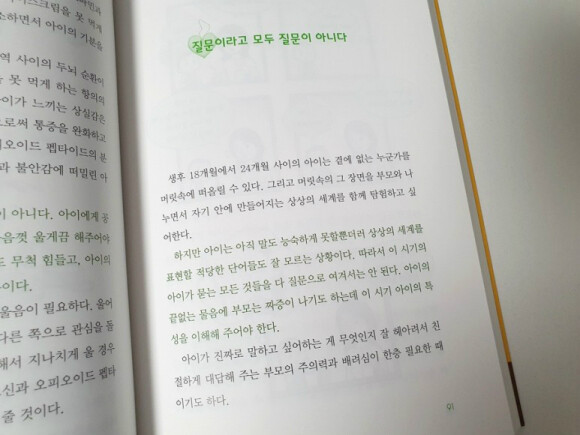 소하면서 아이의 기분을
역 사이의 두뇌 순환이
못 먹게 하는 항의의
아이가 느끼는 상실감은
으로써 통증을 완화하고
피오이드 펩타이드의 분
과 불안감에 떠밀린 아
이 아니다. 아이에게 공
마음껏 울게끔 해주어야
도 무척 힘들고, 아이의
울음이 필요하다. 울어
다른 쪽으로 관심을 돌
해서 지나치게 울 경우
신과 오피오이드 펩타
줄 것이다.
질문이라고 모두 질문이 아니다
생후 18개월에서 24개월 사이의 아이는 곁에 없는 누군가를
머릿속에 떠올릴 수 있다. 그리고 머릿속의 그 장면을 부모와 나
누면서 자기 안에 만들어지는 상상의 세계를 함께 탐험하고 싶
어한다.
하지만 아이는 아직 말도 능숙하게 못할뿐더러 상상의 세계를
표현할 적당한 단어들도 잘 모르는 상황이다. 따라서 이 시기의
아이가 묻는 모든 것들을 다 질문으로 여겨서는 안 된다. 아이의
끝없는 물음에 부모는 짜증이 나기도 하는데 이 시기 아이의 특
성을 이해해 주어야 한다.
아이가 진짜로 말하고 싶어하는 게 무엇인지 잘 헤아려서 친
절하게 대답해 주는 부모의 주의력과 배려심이 한층 필요한 때
이기도 하다.
91